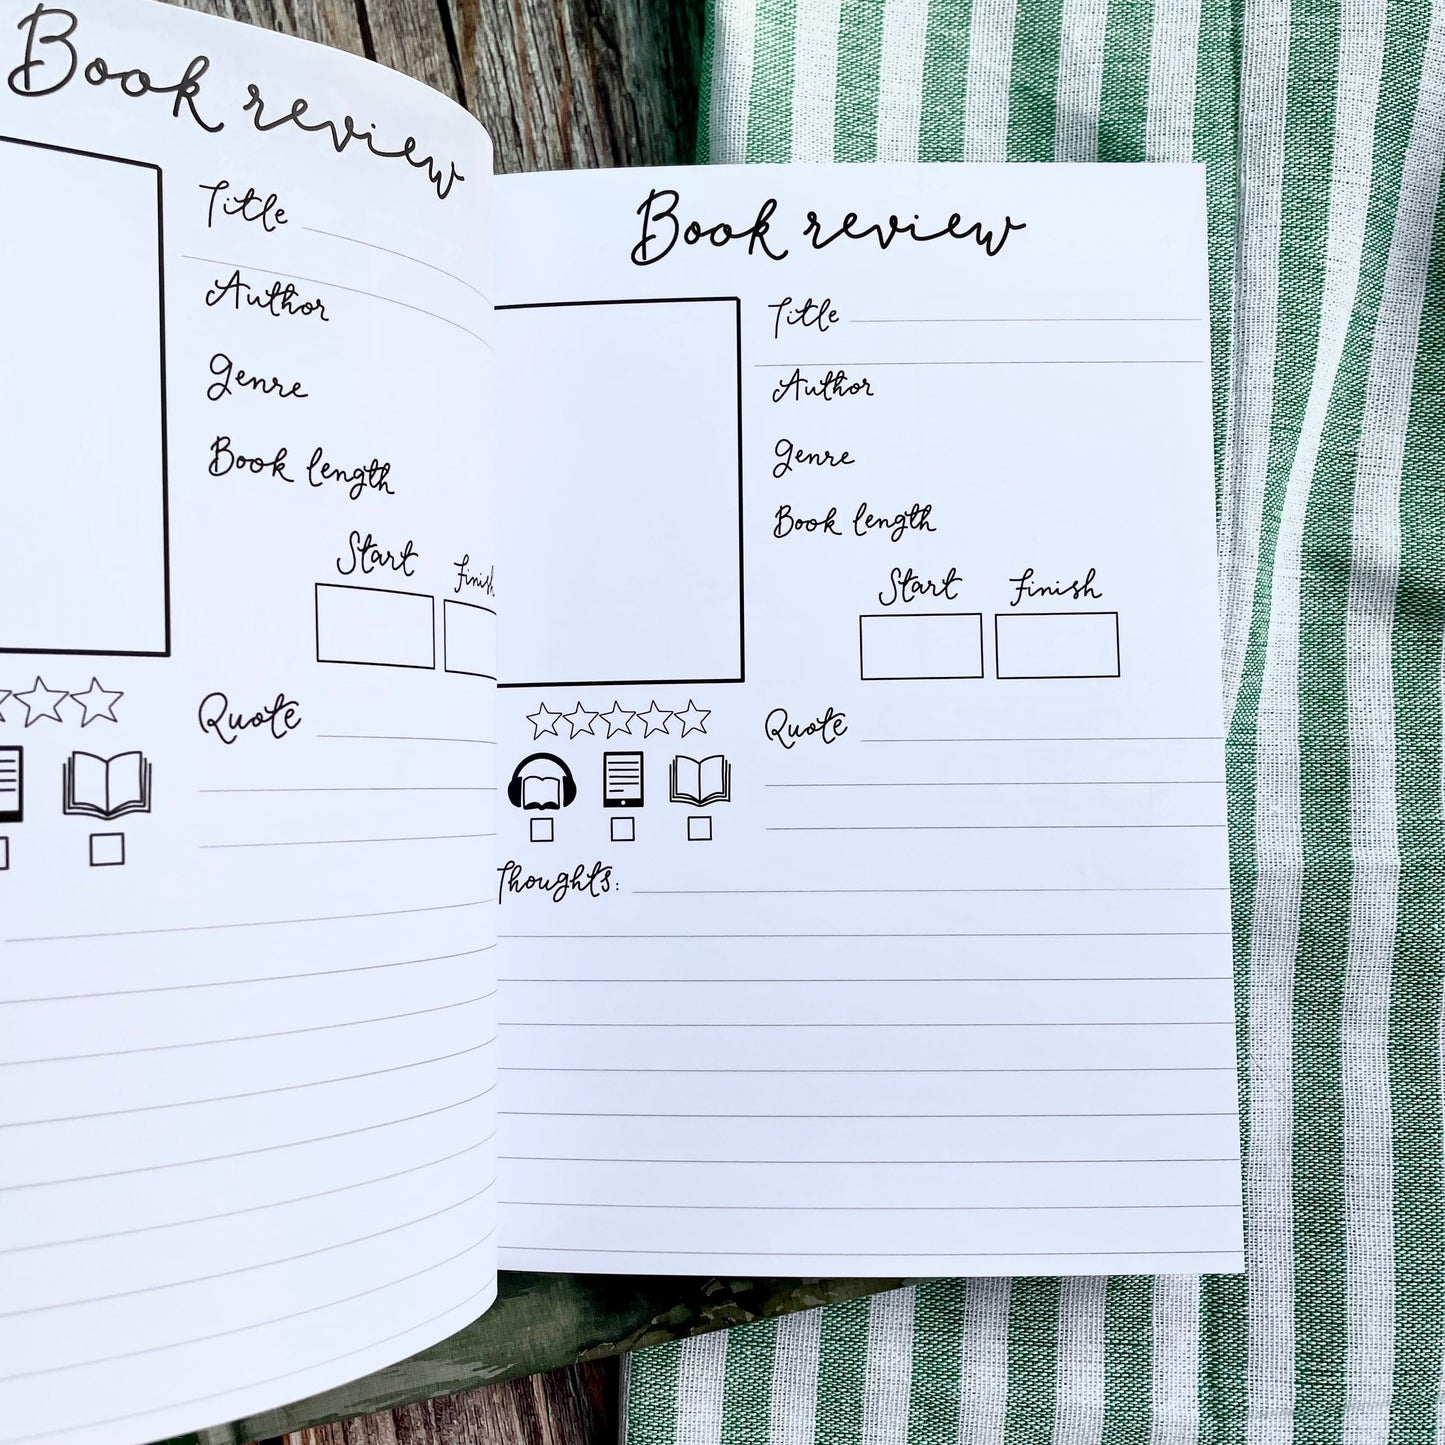 Book review
Title
Author
Genre
Book length
Start Finish
Quote
Book review
Title
Author
Genre
Book length
Start Finish
Quote
Thoughts: